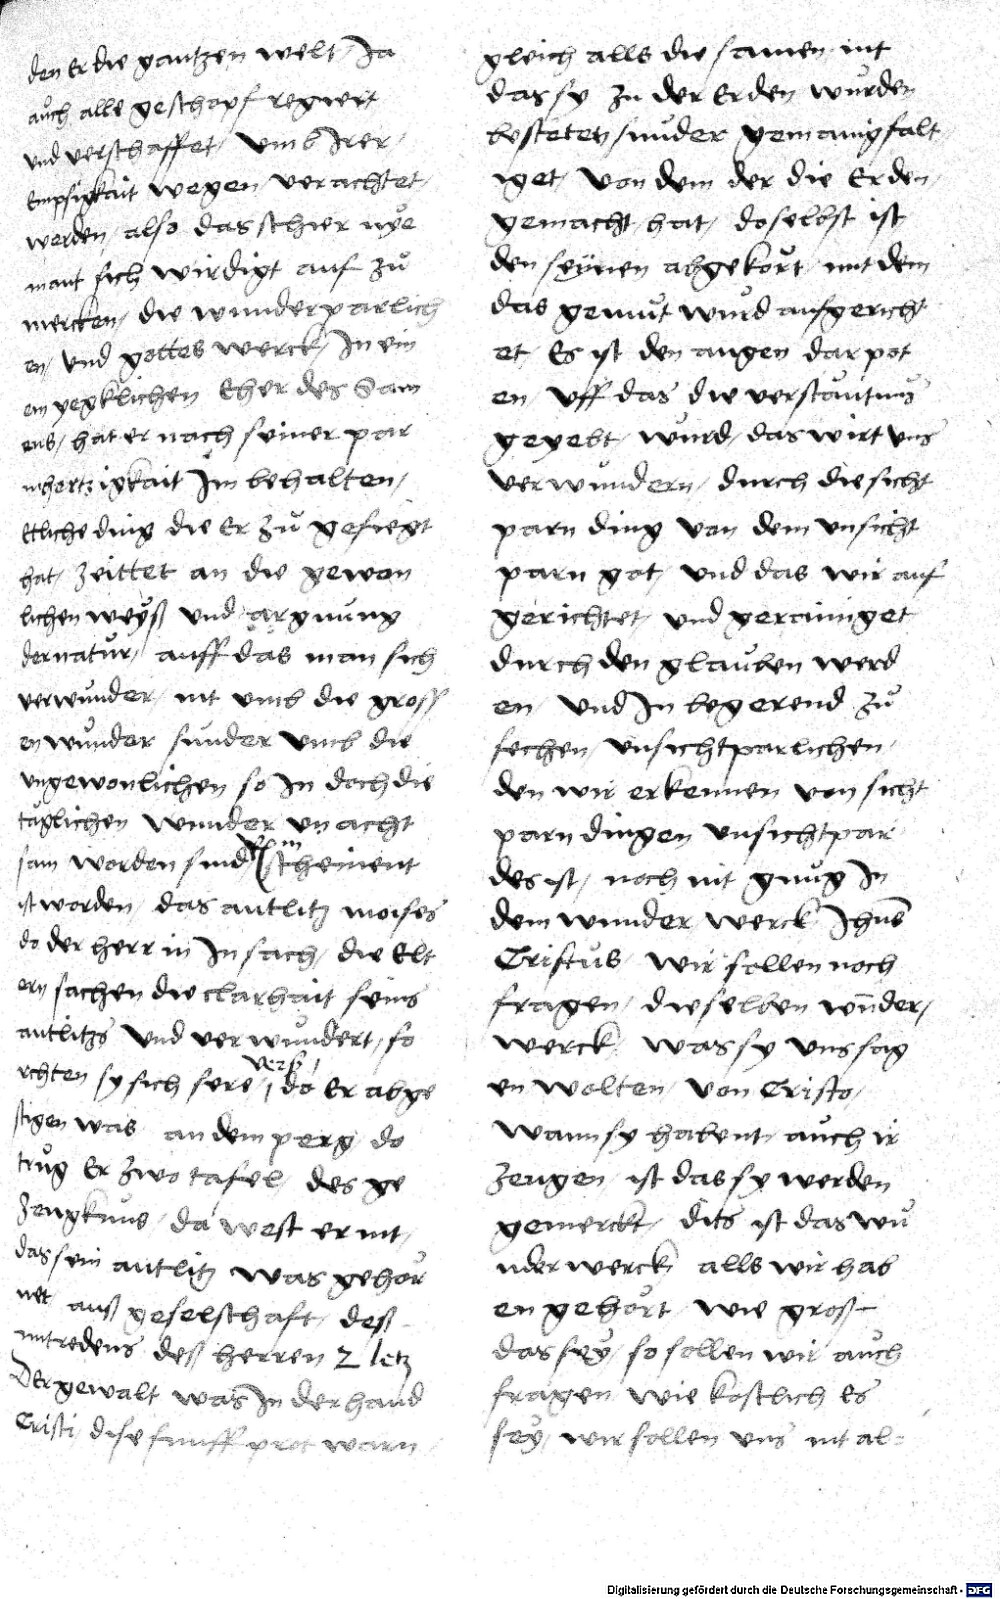 den Er die gantzen welt / Ja
auch alle geschopf regiert
und verschaffet / umb Irer /
Empsigkait wegen verachtet /
werden / also das schier nye
mant sich wirdigt auf zů
mercken / die wunderparlich
en / und gottes werck / In ein
em yegklichen Eher des Sam
ens / hat er nach seiner par
mhertzigkait Im behalten /
Ettliche ding die Er zů gefiegt
hat / zeittet an die gewon
lichen weyß und argnůng
der natůr / auff das man sich
verwůnder / nit umb die gross
en wůnder sůnder umb die
ungewonlichen so In doch die
täglichen wunder un acht
sam worden sind / scheinent
ist worden / das antlitz moises
do der herr in In sach / die Elt
ern sachen die clarhait seins
antlitzs und verwůndert / fo
rchten sy sich sere / vers / do Er abge
stigen was an dem perg / do
trůg Er zwo tafel / des ge
zeugknus / da west er nit /
das sein antlitz was gehör
net auß geselschaft / deß
mitredens deß herren 2 letz
Der gewalt was In der hand
Cristi / dise funff prot warn /
gleich alls die samen / nit
das sy zu der Erden wurden
besteten / sunder gemanigfalt /
iget / von dem der die Erden /
gemacht hat / doselbst ist
den seynen abgekört / mit dem
das gemůt wurd aufgericht
et / Es ist den augen dar pot
en / uff das die verstäntnus
geyebt / wurd / das wirt uns
verwundern / durch die sicht
parn ding von dem unsicht
parn got / und das wir auf
gerichtet / und gerainiget
durch den glauben werd
en / und In begerend zů
sechen / unsichtparlichen /
den wir erkennen von sicht
parn dingen unsichtpar
des ist / noch nit gnůg In
dem wunder werck Ihus
Cristus / wir sollen noch
fragen / die selben wunder /
werck / was sy uns sag
en wolten / von Cristo /
wann sy habent / auch ir
zeugen / ist das sy werden
gemerckt / dits ist das wu
nder werck / alls wir hab
en gehört / wie groß
das sey / so sollen wir auch
fragen wie kostlich es
sey / wir sollen uns nit al=
Digitalisierung gefördert durch die Deutsche Forschungsgemeinschaft - DFG